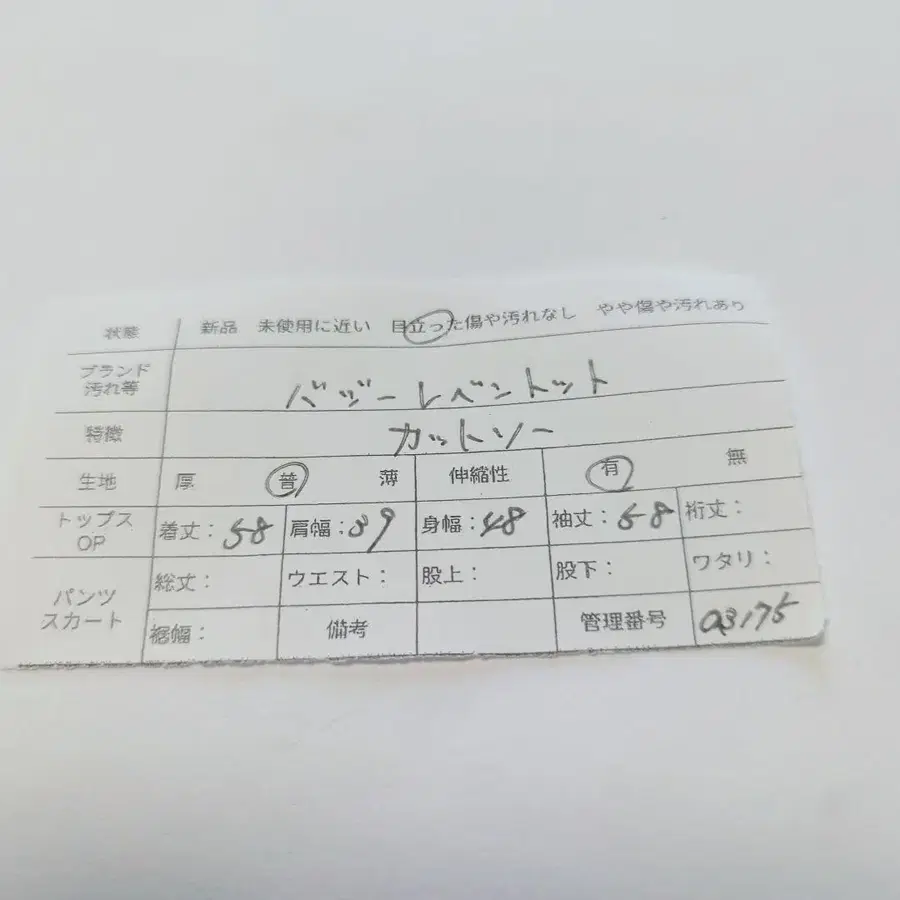 状態 新品 未使用に近い 目立った傷や汚れなし やや傷や汚れあり
ブランド
汚れ等 バヅーレベントット
特徴 カットソー
生地 厚 普 薄 伸縮性 有 無
トップス
OP 着丈:58 肩幅:39 身幅:48 袖丈:58 裄丈:
パンツ
スカート 総丈: ウエスト: 股上: 股下: ワタリ:
裾幅: 備考 管理番号 03175